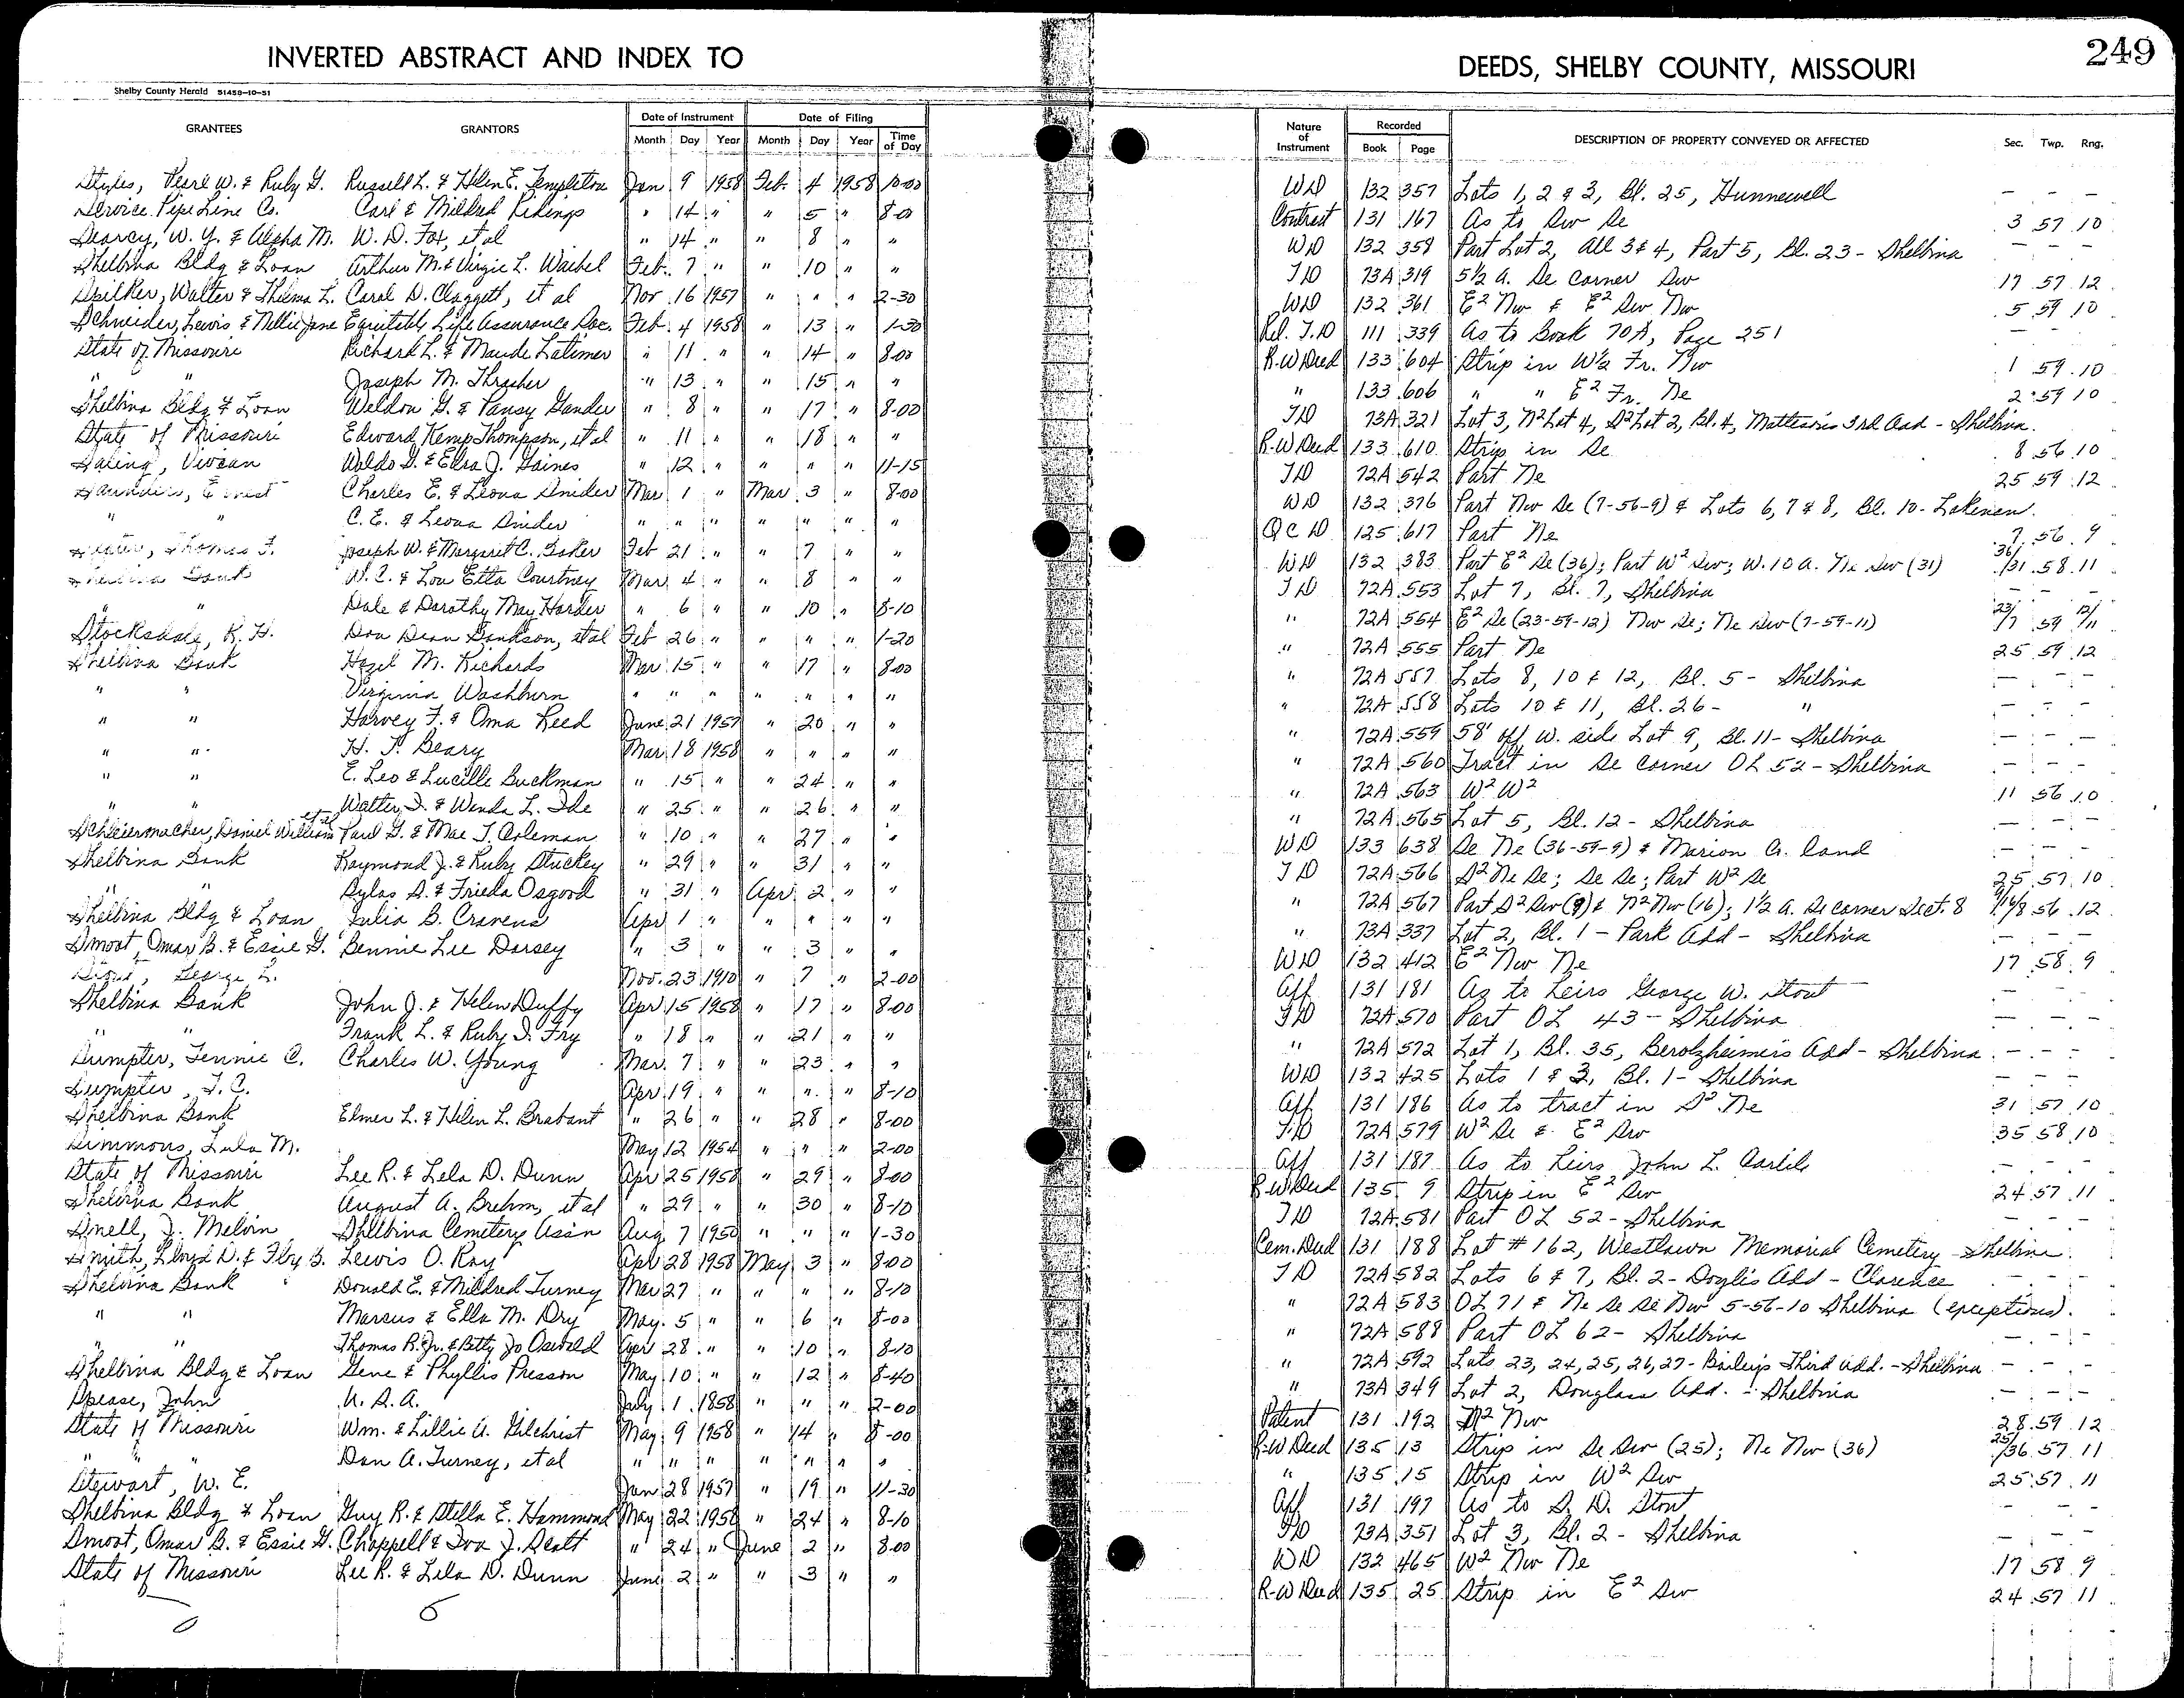 INVERTED ABSTRACT AND INDEX TO
Shelby County Herald 51458-10-51
GRANTEES GRANTORS Date of Instrument Date of Filing
Month Day Year Month Day Year Time of Day
Styles, Pearl W. & Ruby G. Russell L. & Helen E. Templeton Jan 9 1958 Feb. 4 1958 10-00
Service Pipe Line Co. Carl & Mildred Ridings " 14 " " 5 " 8-00
Searcy, W. Y. & Alpha M. W. D. Fox, et al " 14 " " 8 " "
Shelbina Bldg & Loan Arthur M. & Virgie L. Waibel Feb. 7 " " 10 " "
Spilker, Walter & Thelma L. Carol D. Claggett, et al Nov. 16 1957 " " " 2-30
Schneider, Lewis & Nellie Jane Equitable Life Assurance Soc. Feb. 4 1958 " 13 " 1-30
State of Missouri Richard L. & Maude Latimer " 11 " " 14 " 8-00
" " Joseph M. Thrasher " 13 " " 15 " "
Shelbina Bldg & Loan Weldon G. & Pansy Gander " 8 " " 17 " 8-00
State of Missouri Edward Kemp Thompson, et al " 11 " " 18 " "
Saling, Vivian Waldo G. & Edra J. Gaines " 12 " " " " 11-15
Saunders, Ernest Charles E. & Leona Snider Mar 1 " Mar 3 " 8-00
" " C. E. & Leona Snider " " " " " " "
Thomas F. Joseph W. & Margaret C. Baker Feb 21 " " 7 " "
Shelbina Bank W. C. & Lou Etta Courtney Mar. 4 " " 8 " "
" " Dale & Dorothy May Harder " 6 " " 10 " 8-10
Stocksdale, R. H. Don Dean Sankson, et al Feb 26 " " " " 1-20
Shelbina Bank Hazel M. Richards Mar 15 " " 17 " 8-00
" " Virginia Washburn " " " " " " "
" " Harvey F. & Oma Reed June 21 1957 " 20 " "
" " H. T. Beary Mar 18 1958 " " " "
" " E. Leo & Lucille Buckman " 15 " " 24 " "
" " Walter D. & Wanda L. Ide " 25 " " 26 " "
Schleiermacher, Daniel William et al Paul G. & Mae T. Coleman " 10 " " 27 " "
Shelbina Bank Raymond J. & Ruby Stuckey " 29 " " 31 " "
" " Sylas S. & Frieda Osgood " 31 " Apr 2 " "
Shelbina Bldg & Loan Julia B. Cravens Apr 1 " " " " "
Smoot, Omar B. & Essie G. Bennie Lee Dorsey " 3 " " 3 " "
Stout, George L. Nov. 23 1910 " 7 " 2-00
Shelbina Bank John J. & Helen Duffy Apr 15 1958 " 17 " 8-00
" " Frank L. & Ruby I. Fry " 18 " " 21 " "
Sumpter, Tennie C. Charles W. Young Mar. 7 " " 23 " "
Sumpter, T. C. Apr 19 " " " " 8-10
Shelbina Bank Elmer L. & Helen L. Brabant " 26 " " 28 " 8-00
Simmons, Lula M. May 12 1954 " " " 2-00
State of Missouri Lee R. & Lela D. Dunn Apr 25 1958 " 29 " 8-00
Shelbina Bank August A. Brehm, et al " 29 " " 30 " 8-10
Snell, J. Melvin Shelbina Cemetery Ass'n Aug 7 1950 " " " 1-30
Smith, Lloyd D. & Floy B. Lewis O. Ray Apr 28 1958 May 3 " 8-00
Shelbina Bank Donald E. & Mildred Turney Mar 27 " " " " 8-10
" " Marcus & Ella M. Dry May 5 " " 6 " 8-00
" " Thomas R. Jr. & Betty Jo Oswald Apr 28 " " 10 " 8-10
Shelbina Bldg & Loan Gene & Phyllis Presson May 10 " " 12 " 8-40
Spease, John U. S. A. July 1 1858 " " " 2-00
State of Missouri Wm. & Lillie A. Gilchrist May 9 1958 " 14 " 8-00
" " " Dan A. Turney, et al " " " " " " "
Stewart, W. E. Jan 28 1957 " 19 " 11-30
Shelbina Bldg & Loan Guy R. & Stella E. Hammond May 22 1958 " 24 " 8-10
Smoot, Omar B. & Essie G. Chappell & Iva J. Scott " 24 " June 2 " 8-00
State of Missouri Lee R. & Lela D. Dunn June 2 " " 3 " "
249
DEEDS, SHELBY COUNTY, MISSOURI
Nature of Instrument Recorded DESCRIPTION OF PROPERTY CONVEYED OR AFFECTED Sec. Twp. Rng.
Book Page
WD 132 357 Lots 1, 2 & 3, Bl. 25, Hunnewell - - -
Contract 131 167 As to Sw Se 3 57 10
WD 132 358 Part Lot 2, All 3 & 4, Part 5, Bl. 23 - Shelbina - - -
TD 73A 319 5½ a. Se corner Sw 17 57 12
WD 132 361 E² Nw & E² Sw Nw 5 59 10
Rel. T.D 111 339 As to Book 70A, Page 251 - -
R-W Deed 133 604 Strip in W½ Fr. Nw 1 59 10
" 133 606 " " E² Fr. Ne 2 59 10
TD 73A 321 Lot 3, N² Lot 4, S² Lot 2, Bl. 4, Matteson's 3rd Add - Shelbina.
R-W Deed 133 610 Strip in Se 8 56 10
TD 72A 542 Part Ne 25 59 12
WD 132 376 Part Nw Se (7-56-9) & Lots 6, 7 & 8, Bl. 10 - Lakenan.
QCD 125 617 Part Ne 7 56 9
WD 132 383 Part E² Se (36); Part W² Sw; W. 10 A. Ne Sw (31) 36/31 58 11
TD 72A 553 Lot 7, Bl. 7, Shelbina - - -
" 72A 554 E² Se (23-59-12) Nw Se; Ne Sw (7-59-11) 23/7 59 12/11
" 72A 555 Part Ne 25 59 12
" 72A 557 Lots 8, 10 & 12, Bl. 5 - Shelbina - - -
" 72A 558 Lots 10 & 11, Bl. 26 - " - - -
" 72A 559 58' off W. side Lot 9, Bl. 11 - Shelbina - - -
" 72A 560 Tract in Se corner OL 52 - Shelbina - - -
" 72A 563 W² W² 11 56 10
" 72A 565 Lot 5, Bl. 12 - Shelbina - - -
WD 133 638 Se Ne (36-59-9) & Marion Co. land - - -
TD 72A 566 S² Ne Se; Se Se; Part W² Se 25 57 10
" 72A 567 Part S² Sw (9) & N² Nw (16); 1½ a. Se corner Sect. 8 9/16/8 56 12
" 73A 337 Lot 2, Bl. 1 - Park Add - Shelbina - - -
WD 132 412 E² Nw Ne 17 58 9
Aff 131 181 As to heirs George W. Stout - - -
TD 72A 570 Part OL 43 - Shelbina - - -
" 72A 572 Lot 1, Bl. 35, Berolzheimer's Add - Shelbina - - -
WD 132 425 Lots 1 & 3, Bl. 1 - Shelbina - - -
Aff 131 186 As to tract in S² Ne 31 57 10
TD 72A 579 W² Se & E² Sw 35 58 10
Aff 131 187 As to heirs John L. Carlile - - -
R-W Deed 135 9 Strip in E² Sw 24 57 11
TD 72A 581 Part OL 52 - Shelbina - - -
Cem. Deed 131 188 Lot #162, Westlawn Memorial Cemetery - Shelbina.
TD 72A 582 Lots 6 & 7, Bl. 2 - Doyle's Add - Clarence - - -
" 72A 583 OL 71 & Ne Se Se Nw 5-56-10 Shelbina (exceptions).
" 72A 588 Part OL 62 - Shelbina - - -
" 72A 592 Lots 23, 24, 25, 26, 27 - Bailey's Third Add. - Shelbina - - -
" 73A 349 Lot 2, Douglass Add. - Shelbina - - -
Patent 131 192 N² Nw 28 59 12
R-W Deed 135 13 Strip in Se Sw (25); Ne Nw (36) 25/36 57 11
" 135 15 Strip in W² Sw 25 57 11
Aff 131 197 As to S. D. Stout - - -
TD 73A 351 Lot 3, Bl. 2 - Shelbina - - -
WD 132 465 W² Nw Ne 17 58 9
R-W Deed 135 25 Strip in E² Sw 24 57 11